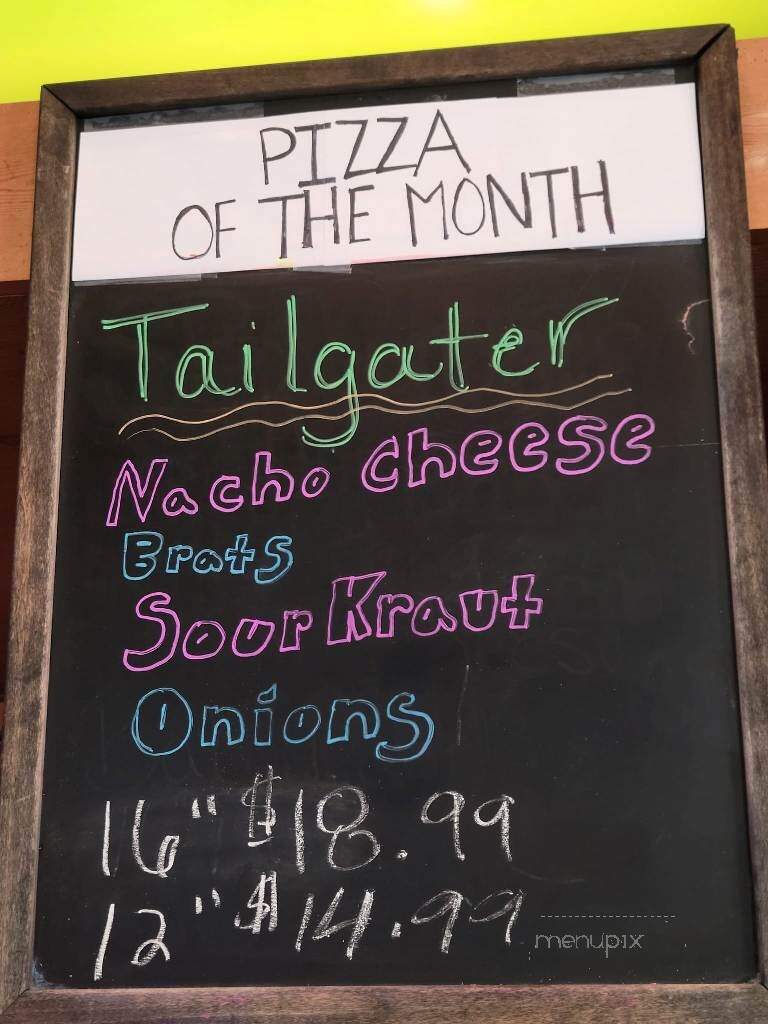 PIZZA
OF THE MONTH
Tailgater
Nacho cheese
Brats
Sour Kraut
Onions
16" $18.99
12" $14.99
menupix